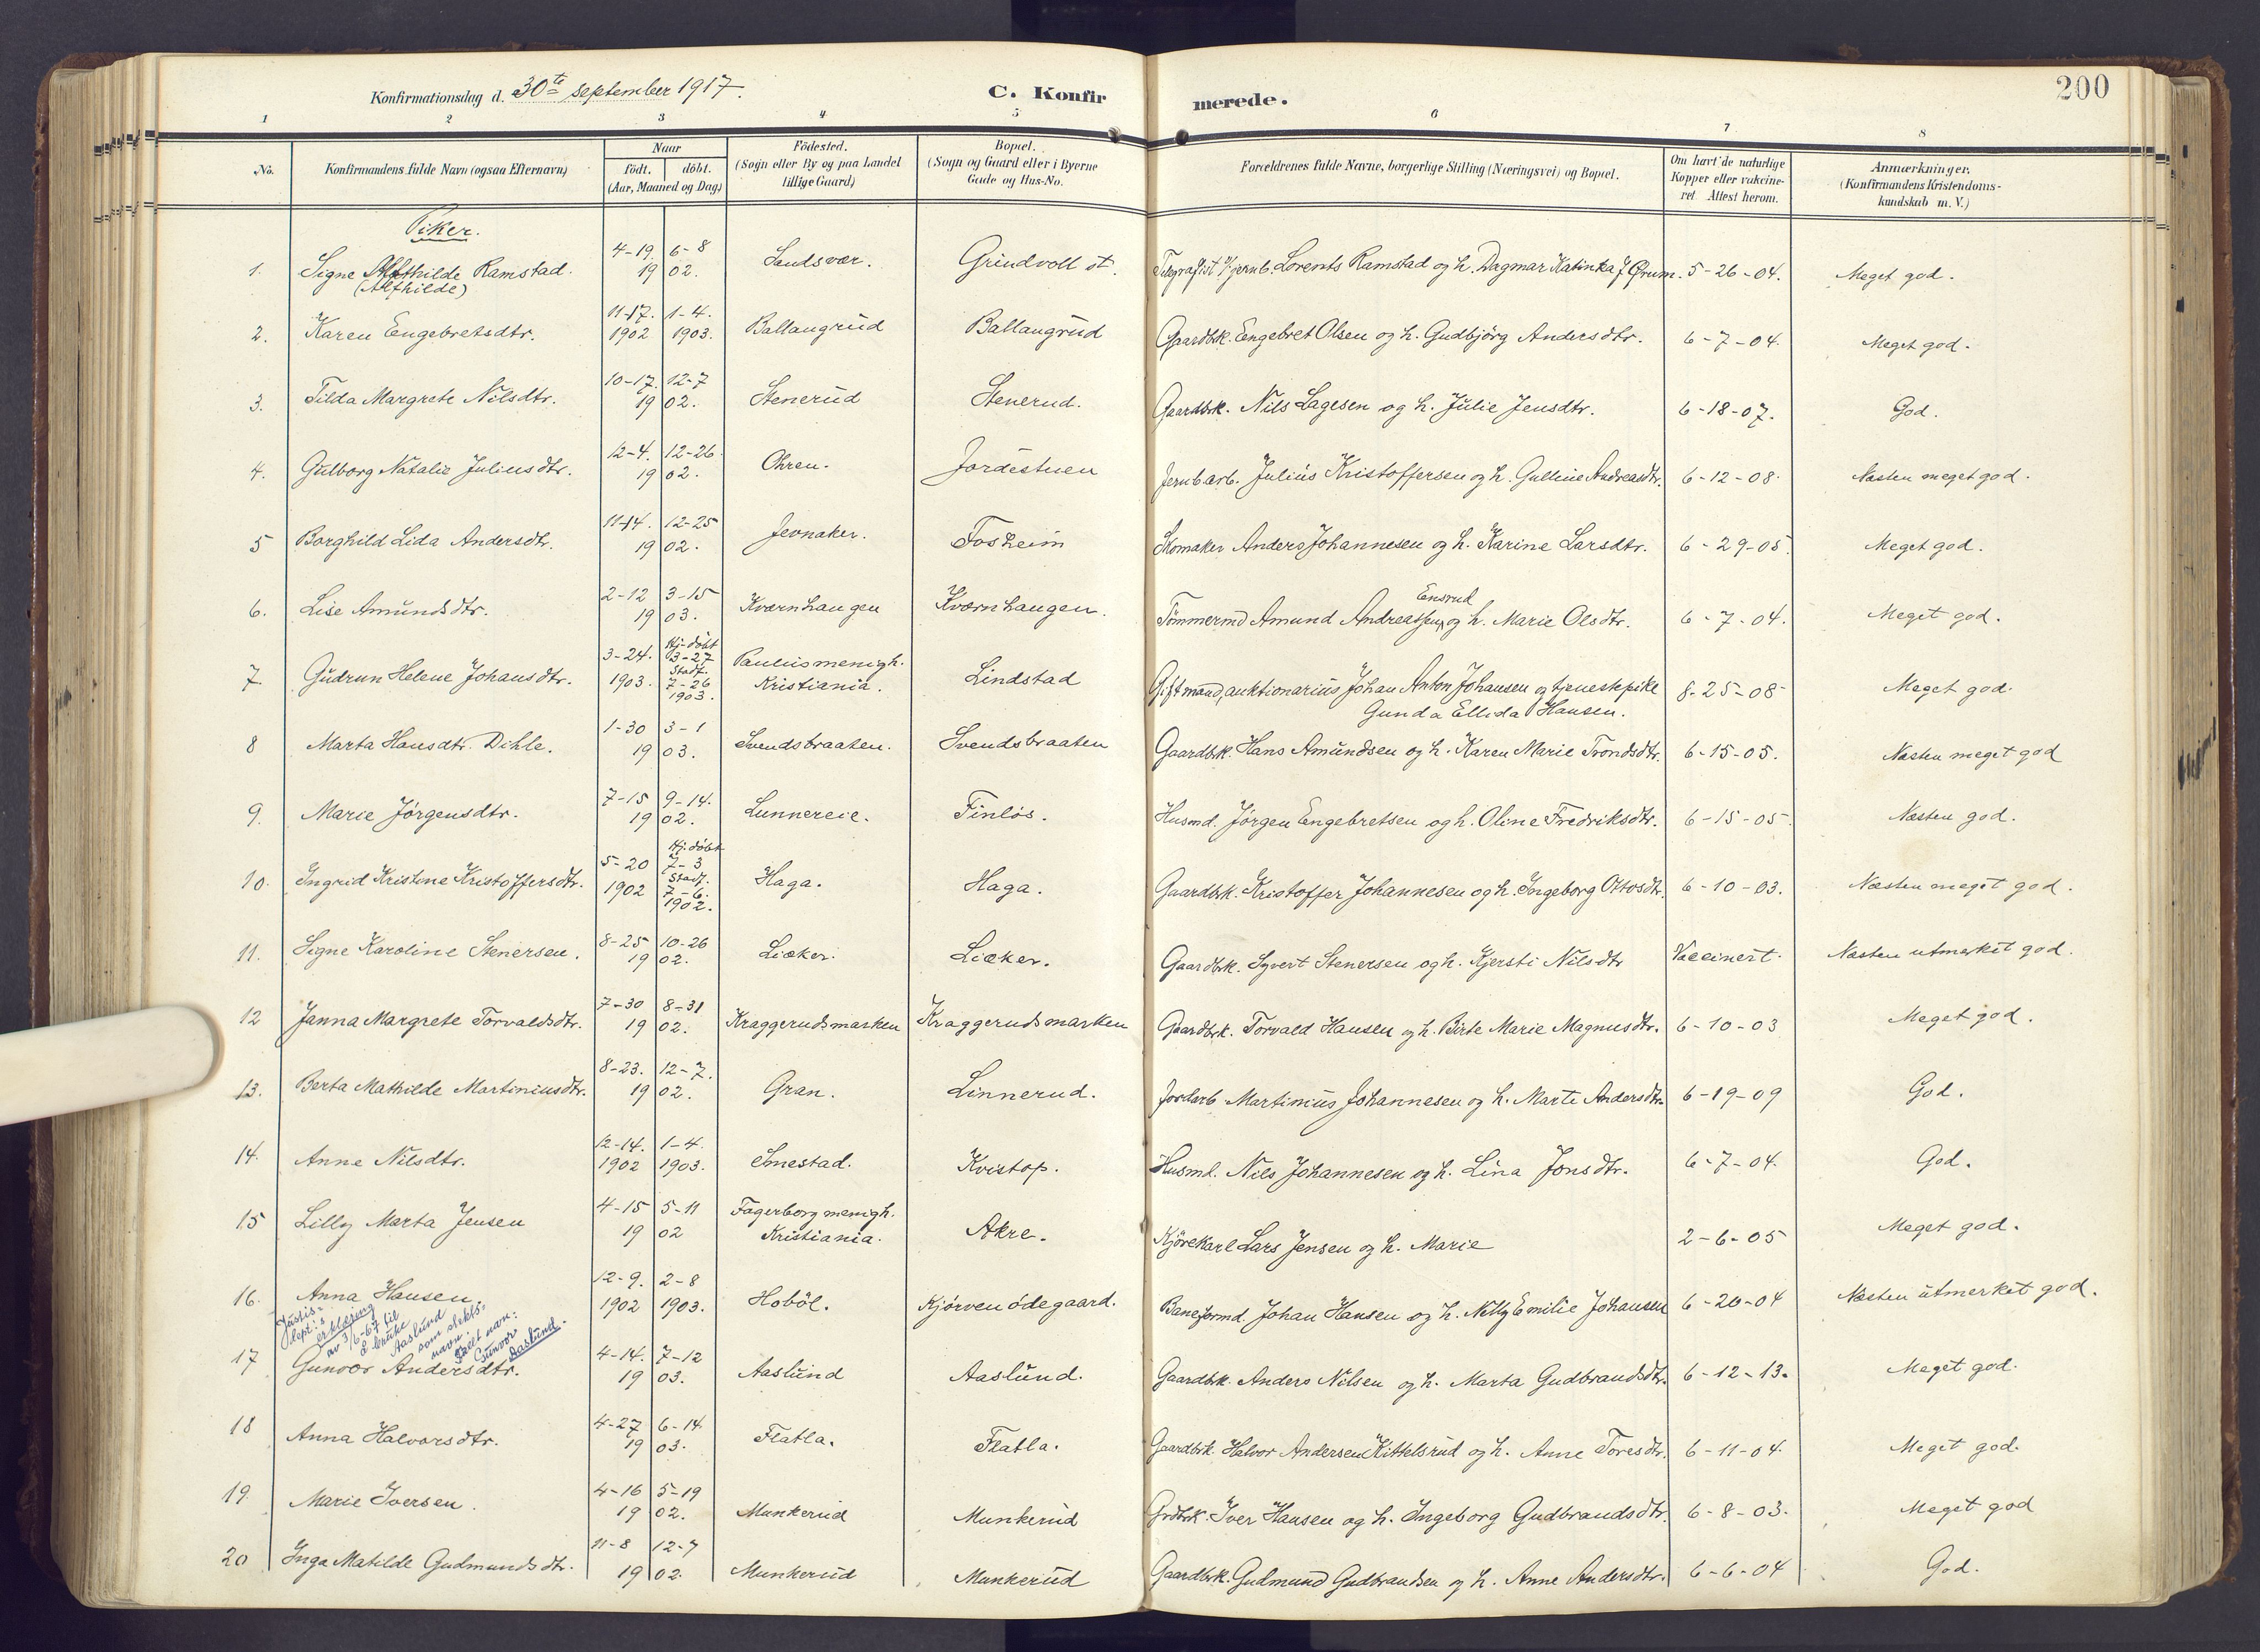 Konfirmationsdag d. 30te september 1917.
C. Konfir
merede.
200
1 2 3 4 5 6 7 8
No.
Konfirmandens fulde Navn (ogsaa Efternavn)
Naar
födt. döbt.
(Aar, Maaned og Dag)
Födested.
(Sogn eller By og paa Landet
tillige Gaard)
Bopæl.
(Sogn og Gaard eller i Byerne
Gade og Hus-No.
Forældrenes fulde Navne, borgerlige Stilling (Næringsvei) og Bopæl.
Om havt de naturlige
Kopper eller vakcine-
ret Attest herom.
Anmærkninger.
(Konfirmandens Kristendoms-
kundskab m. V.)
Piker.
1. Signe Alfthilde Ramstad. (Alfhilde) 4-19. 6-8 1902. Sandsvær. Grindvoll st. Telegrafist v/jernb. Lorents Ramstad og h. Dagmar Katinka f Ørum. 5-26-04. Meget god.
2. Karen Engebretsdtr. 11-17. 1902 1-4. 1903. Ballangrud Ballangrud Gaardbk. Engebret Olsen og h. Gudbjörg Andersdtr. 6-7-04. Meget god.
3. Tilda Margrete Nilsdtr. 10-17. 12-7 1902. Stenerud Stenerud. Gaardbk. Nils Lagesen og h. Julie Jensdtr. 6-18-07. God.
4. Gulborg Natalie Juliusdtr. 12-4. 12-26. 1902. Ohren. Jordestuen Jernbarb. Julius Kristoffersen og h. Gulline Andreasdtr. 6-12-08. Næsten meget god.
5 Borghild Lida Andersdtr. 11-14. 12-25 1902. Jevnaker. Fosheim Skomaker Anders Johannesen og h. Karine Larsdtr. 6-29-05. Meget god.
6. Lise Amundsdtr. 2-12 3-15 1903. Kværnhaugen Kværnhaugen. Tömmermd Amund Andreassen Ensrud og h. Marie Olsdtr. 6-7-04. Meget god.
7. Gudrun Helene Johansdtr. 3-24. 1903. Hj-döbt 3-27 Stadf. 7-26 1903. Paulus menigh. Kristiania. Lindstad Gift mand, auktionarius Johan Anton Johansen og tjenestepike Gunda Ellida Hansen. 8-25-08 Meget god.
8 Marta Hansdtr. Dihle. 1-30 3-1 1903. Svendsbraaten. Svendsbraaten Gaardbk. Hans Amundsen og h. Karen Marie Trondsdtr. 6-15-05. Næsten meget god
9. Marie Jørgensdtr. 7-15 9-14. 1902. Lunnereie. Finlös. Husmd. Jørgen Engebretsen og h. Oline Fredriksdtr. 6-15-05. Næsten god.
10. Ingrid Kristine Kristoffersdtr. 5-20 1902 Hj. döbt 7-3 Stadf. 7-6. 1902. Haga. Haga. Gaardbk. Kristoffer Johannesen og h. Ingeborg Ottosdtr. 6-10-03. Næsten meget god.
11. Signe Karoline Stenersen. 8-25 10-26 1902. Liæker. Liæker. Gaardbk. Syvert Stenersen og h. Kjersti Nilsdtr Vaccinert. Næsten utmerket god.
12 Janna Margrete Torvaldsdtr. 7-30 8-31 1902. Kraggerudsmarken Kraggerudsmarken Gaardbk. Torvald Hansen og h. Birte Marie Magnusdtr. 6-10-03 Meget god.
13. Berta Mathilde Martiniusdtr. 8-23. 12-7. 1902. Gran. Linnerud. Jordarb Martinius Johannesen og h. Marte Andersdtr. 6-19-09 God.
14. Anne Nilsdtr. 12-14. 1902 1-4. 1903. Smestad. Kvistop. Husmd. Nils Johannesen og h. Lina Jonsdtr. 6-7-04. God.
15 Lilly Marta Jensen 4-15 5-11 1902 Fagerborg menigh. Kristiania. Akre. Kjörekarl Lars Jensen og h. Marie 2-6-05 Meget god.
16. Anna Hansen. 12-9. 1902 2-8 1903. Hoböl. Kjörven ödegaard. Baneformd. Johan Hansen og h. Nilly Emilie Johansen 6-20-04 Næsten utmerket god.
Justis-
dept:s
erklæring
av 3/6-67 til
å bruke
Aaslund
som slekts-
navn.
Fullt navn:
Gunvor
Aaslund.
17 Gunvor Andersdtr. 4-14. 7-12 1903. Aaslund Aaslund. Gaardbk. Anders Nilsen og h. Marta Gudbrandsdtr. 6-12-13. Meget god.
18 Anna Halvorsdtr. 4-27 6-14. 1903. Flatla. Flatla. Gaardbk. Halvor Andersen Kittelsrud og h. Anne Toresdtr. 6-11-04. Meget god.
19. Marie Iversen. 4-16 5-19 1902. Munkerud Munkerud Grdbk. Iver Hansen og h. Ingeborg Gudbrandsdtr. 6-8-03. Meget god
20 Inga Matilde Gudmundsdtr. 11-8 12-7 1902. Munkerud Munkerud Gaardbk. Gudmund Gudbrandsen og h. Anne Andersdtr. 6-6-04 God.